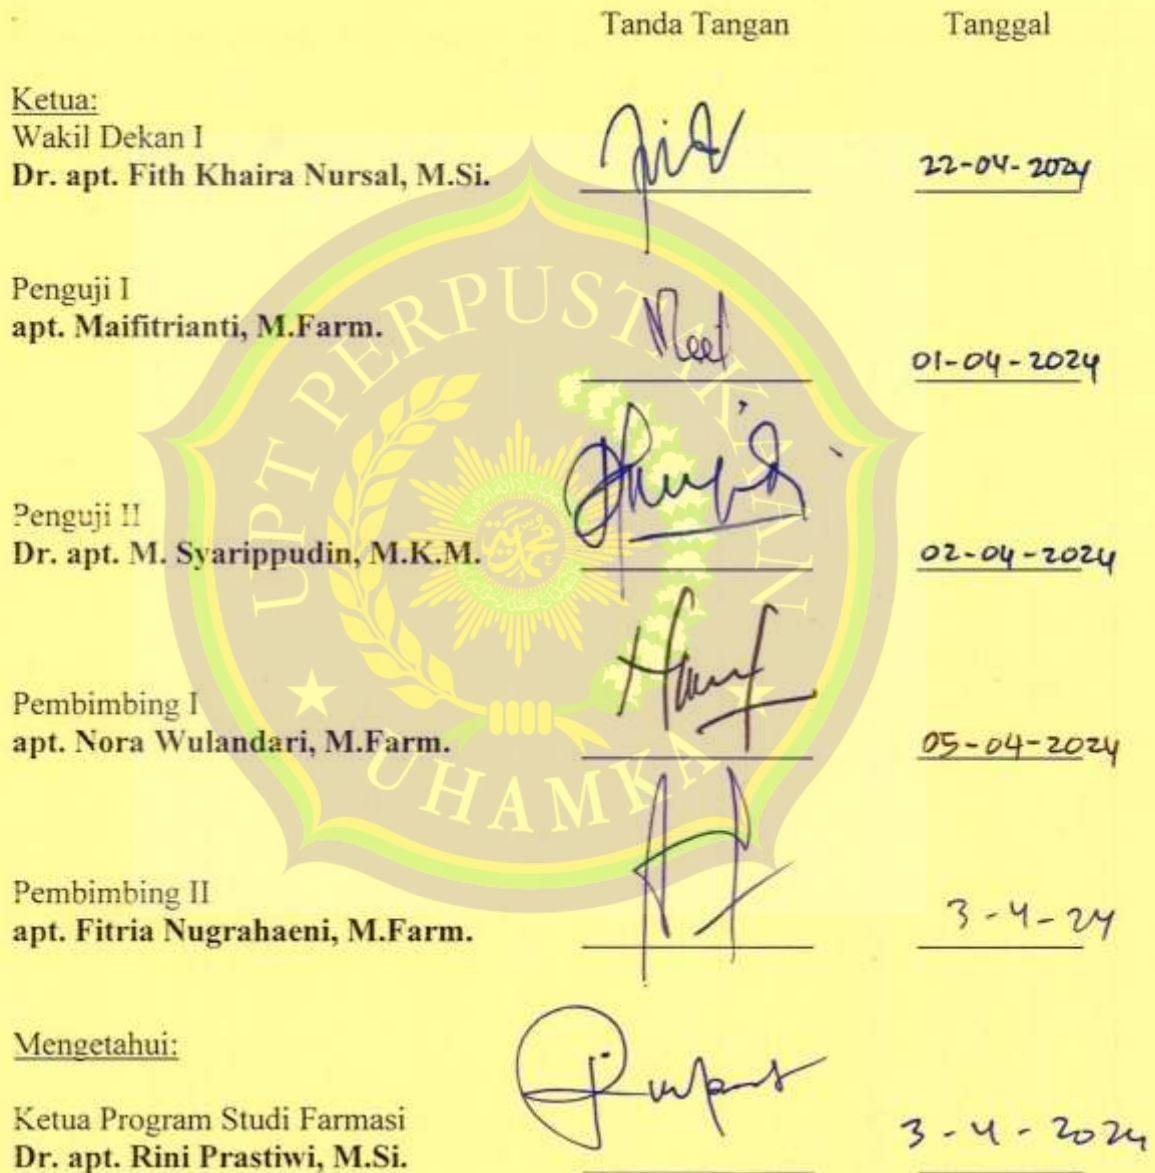 Tanda Tangan Tanggal
Ketua:
Wakil Dekan I
Dr. apt. Fith Khaira Nursal, M.Si. 22-04-2024
Penguji I
apt. Maifitrianti, M.Farm. 01-04-2024
Penguji II
Dr. apt. M. Syarippudin, M.K.M. 02-04-2024
Pembimbing I
apt. Nora Wulandari, M.Farm. 05-04-2024
Pembimbing II
apt. Fitria Nugrahaeni, M.Farm. 3-4-24
Mengetahui:
Ketua Program Studi Farmasi
Dr. apt. Rini Prastiwi, M.Si. 3-4-2024
UPT PERPUSTAKAAN
UHAMKA